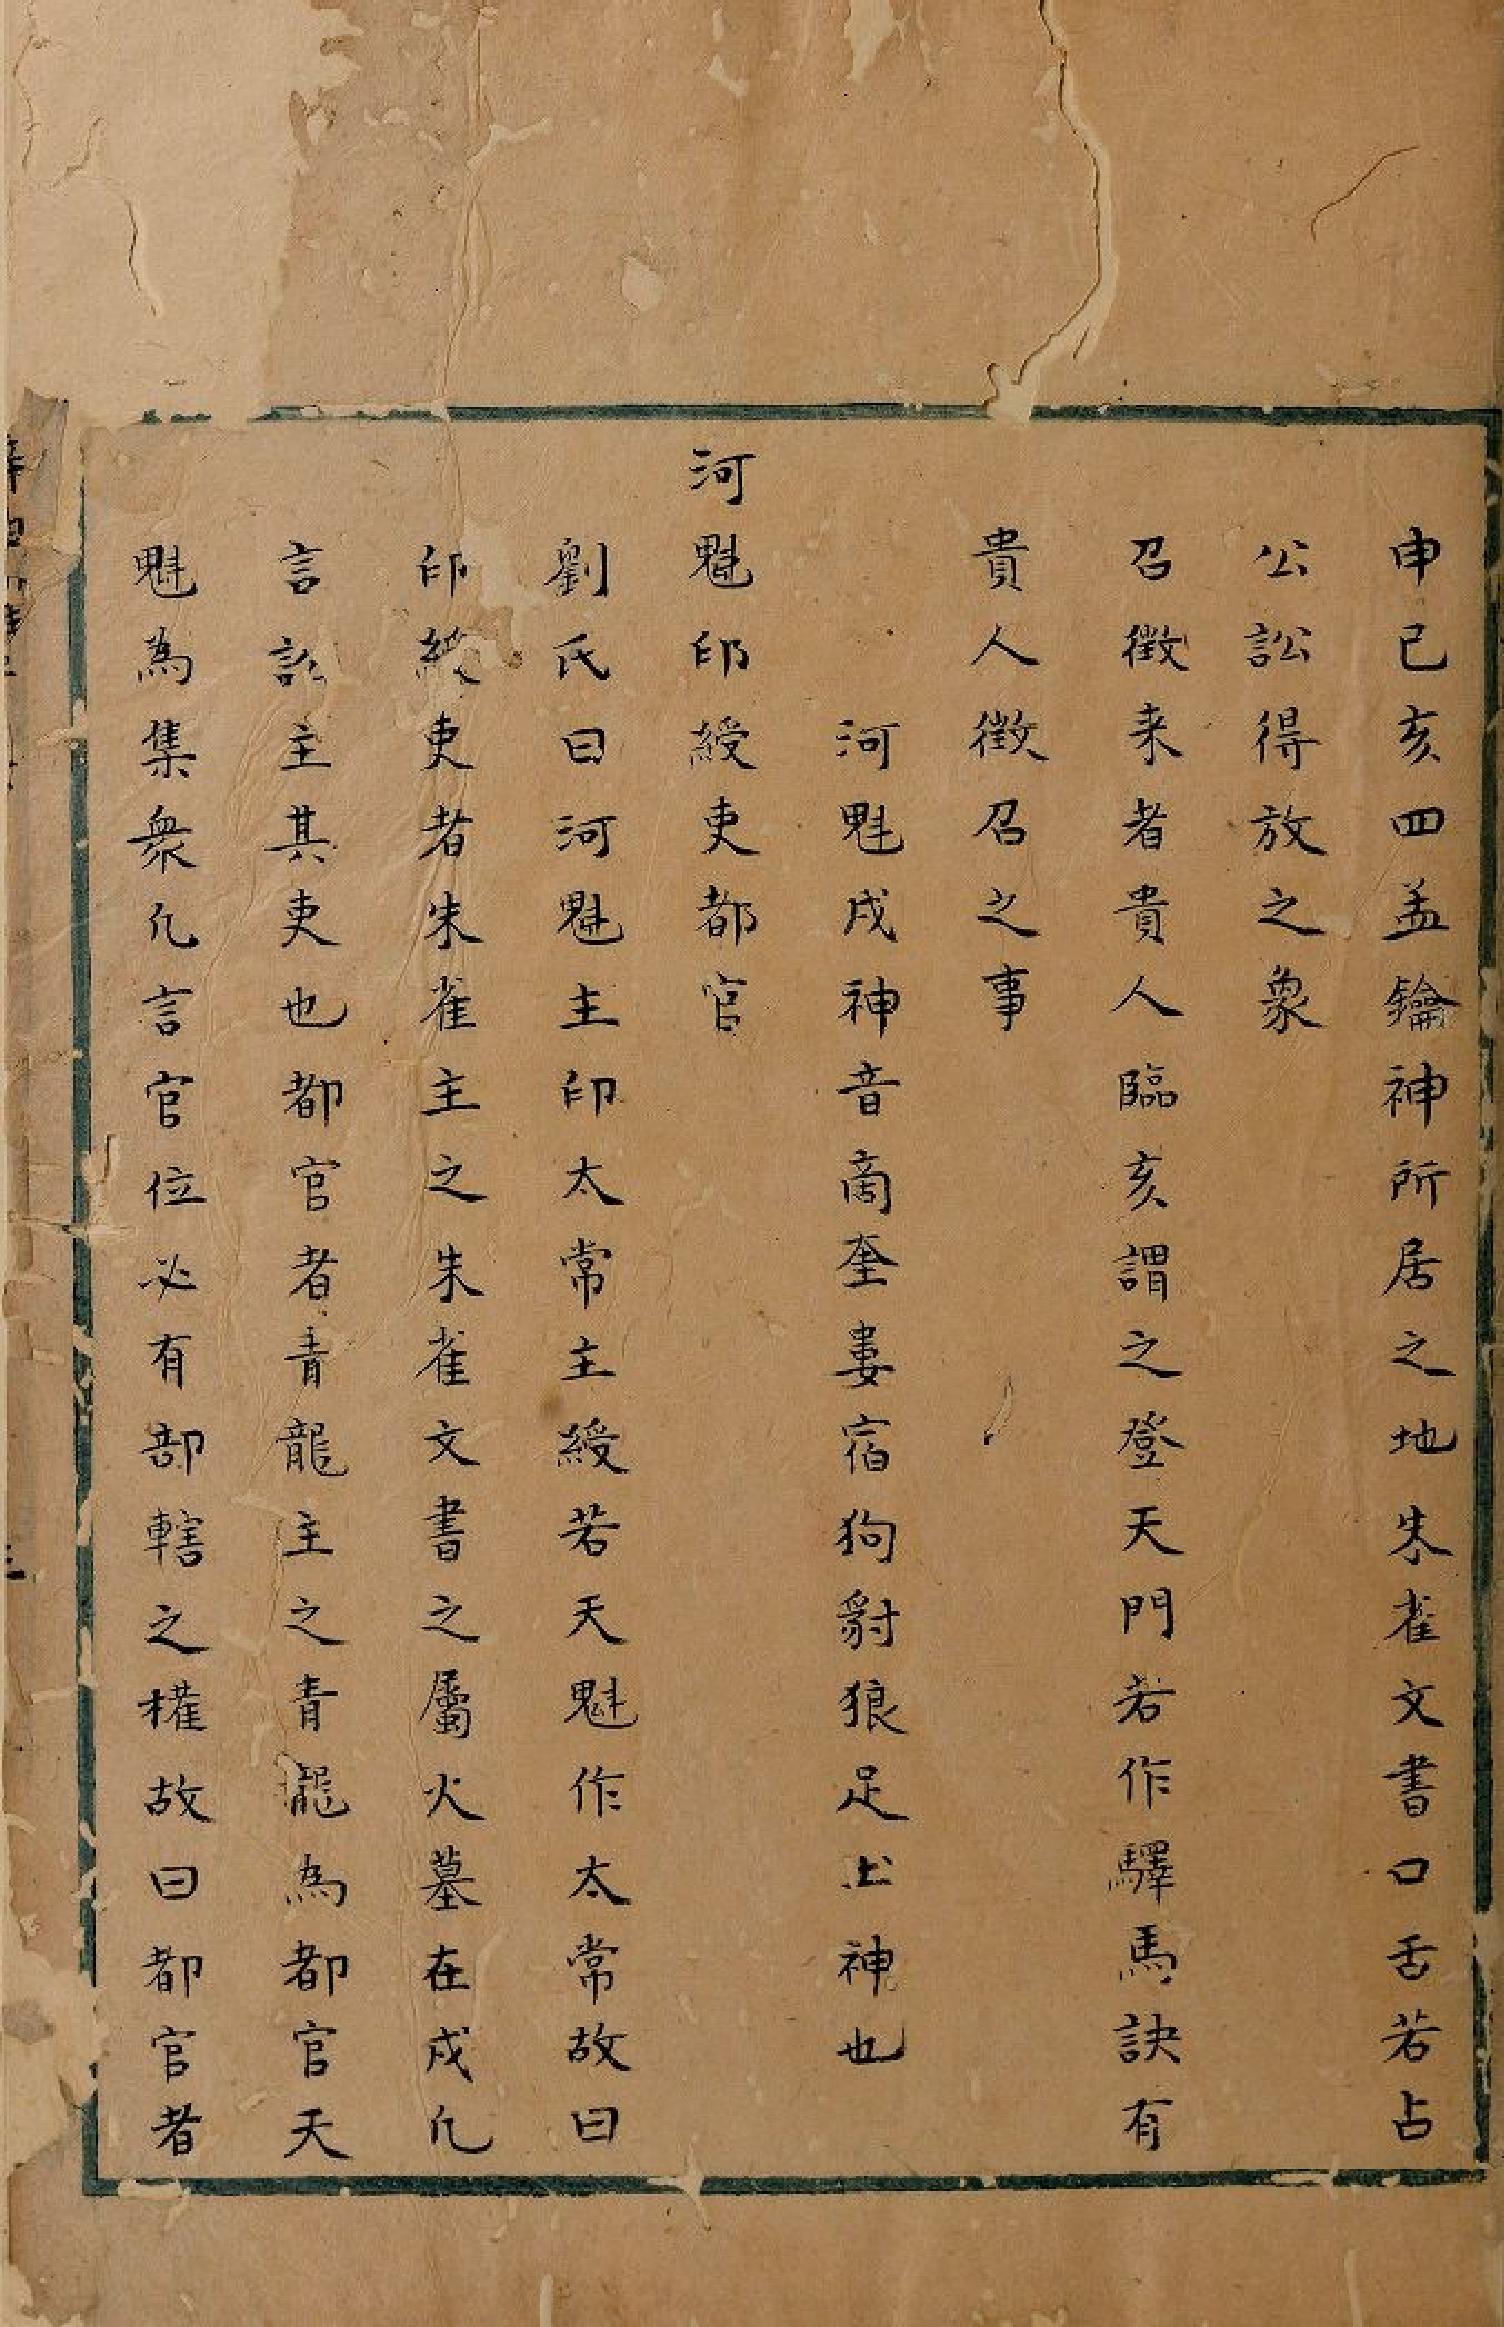 申巳亥四孟鑰神所居之地朱雀文書口舌若占
公訟得放之象
召徵来者貴人臨亥謂之登天門若作驛馬訣有
貴人徵召之事
河魁戌神音商奎婁宿狗豺狼足上神也
河魁印綬吏都官
劉氏曰河魁主印太常主綬若天魁作太常故曰
印綬吏者朱雀主之朱雀文書之屬火墓在戌凡
言訟主其吏也都官者青龍主之青龍為都官天
魁為集衆凡言官位必有部轄之權故曰都官者